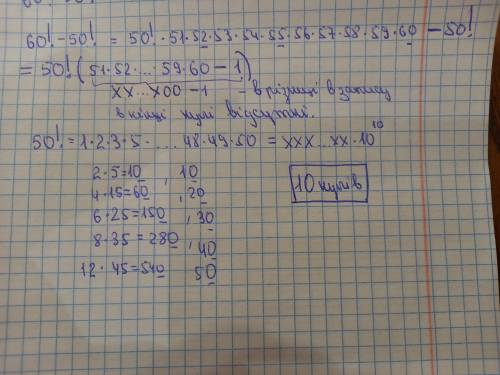 60! - 50! = 50! · 51·52·53·54·55·56·57·58·59·60 - 50!
= 50! (51·52·... 59·60 - 1)
XX...X00 - 1 - в різниці в запису
в кінці нулі відсутні.
50! = 1·2·3·5·.... 48·49·50 = XXX...XX·10^10
2·5=10, 10
4·15=60, 20
6·25=150, 30
8·35=280, 40
12·45=540 50
10 нулів